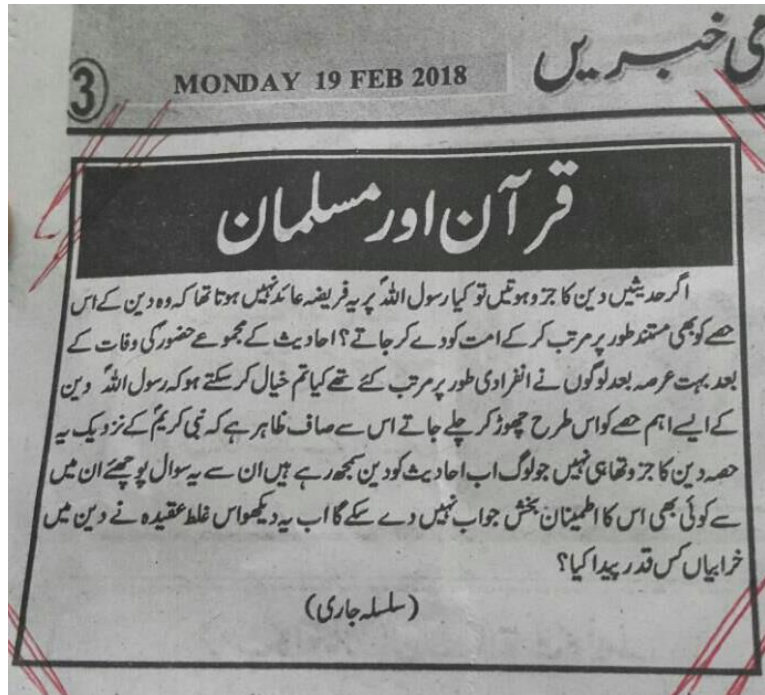 می خبریں
3 MONDAY 19 FEB 2018
قرآن اور مسلمان
اگر حدیثیں دین کا جزو ہوتیں تو کیا رسول اللہؐ پر یہ فریضہ عائد نہیں ہوتا تھا کہ وہ دین کے اس
حصے کو بھی مستند طور پر مرتب کر کے امت کو دے کر جاتے؟ احادیث کے مجموعے حضورؐ کی وفات کے
بعد بہت عرصہ بعد لوگوں نے انفرادی طور پر مرتب کئے تھے کیا تم خیال کر سکتے ہو کہ رسول اللہؐ دین
کے ایسے اہم حصے کو اس طرح چھوڑ کر چلے جاتے اس سے صاف ظاہر ہے کہ نبی کریمؐ کے نزدیک یہ
حصہ دین کا جزو تھا ہی نہیں جو لوگ اب احادیث کو دین سمجھ رہے ہیں ان سے یہ سوال پوچھئے ان میں
سے کوئی بھی اس کا اطمینان بخش جواب نہیں دے سکے گا اب یہ دیکھو اس غلط عقیدہ نے دین میں
خرابیاں کس قدر پیدا کیا؟
(سلسلہ جاری)